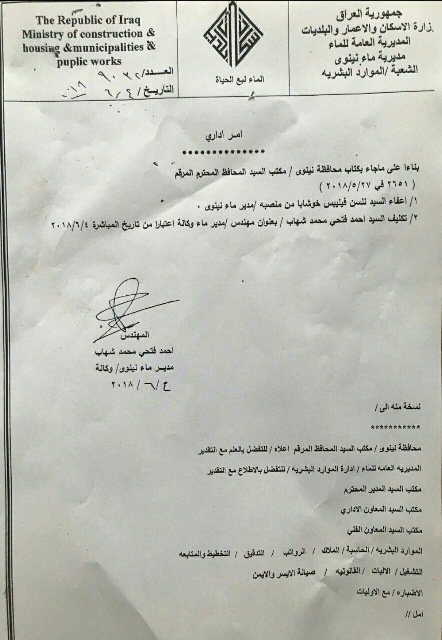 The Republic of Iraq
Ministry of construction &
housing &municipalities &
puplic works
العدد/ ٩٠٣٢
التاريخ/ ٦/٤ /٢٠١٨
الماء نبع الحياة
جمهورية العراق
وزارة الاسكان والاعمار والبلديات
المديرية العامة للماء
مديرية ماء نينوى
الشعبة /الموارد البشريه
امر اداري
••••••••••••••
بناءا على ماجاء بكتاب محافظة نينوى / مكتب السيد المحافظ المحترم المرقم
( ٢٦٥١ في ٢٠١٨/٥/٢٧ )
١/ اعفاء السيد نلسن فيليبس خوشابا من منصبه /مدير ماء نينوى .
٢/ تكليف السيد احمد فتحي محمد شهاب / بعنوان مهندس /مدير ماء وكالة اعتبارا من تاريخ المباشرة ٢٠١٨/٦/٤
المهندس
احمد فتحي محمد شهاب
مدير ماء نينوى/ وكالة
٤ /٦/ ٢٠١٨
نسخة منه الى /
***********
محافظة نينوى / مكتب السيد المحافظ المرقم اعلاه / للتفضل بالعلم مع التقدير
المديريه العامه للماء / ادارة الموارد البشريه / للتفضل بالاطلاع مع التقدير
مكتب السيد المدير المحترم
مكتب السيد المعاون الاداري
مكتب السيد المعاون الفني
الموارد البشريه / الحاسبة / الملاك / الرواتب / التدقيق / التخطيط والمتابعه
التشغيل / الاليات / القانونيه / صيانة الايسر والايمن
الاضباره / مع الاوليات
امل //